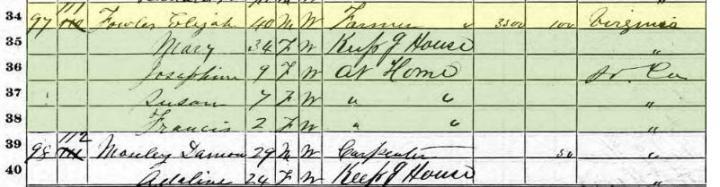 34 97 111 Fowler Elijah 40 M W Farmer 3500 100 Virginia
35 Mary 34 F W Keeps House "
36 Josephine 9 F W At Home W. Va
37 Susan 7 F W " " "
38 Francis 2 F W " " "
39 98 112 Manley Damon 29 M W Carpenter 50 "
40 Adaline 24 F W Keeps House "